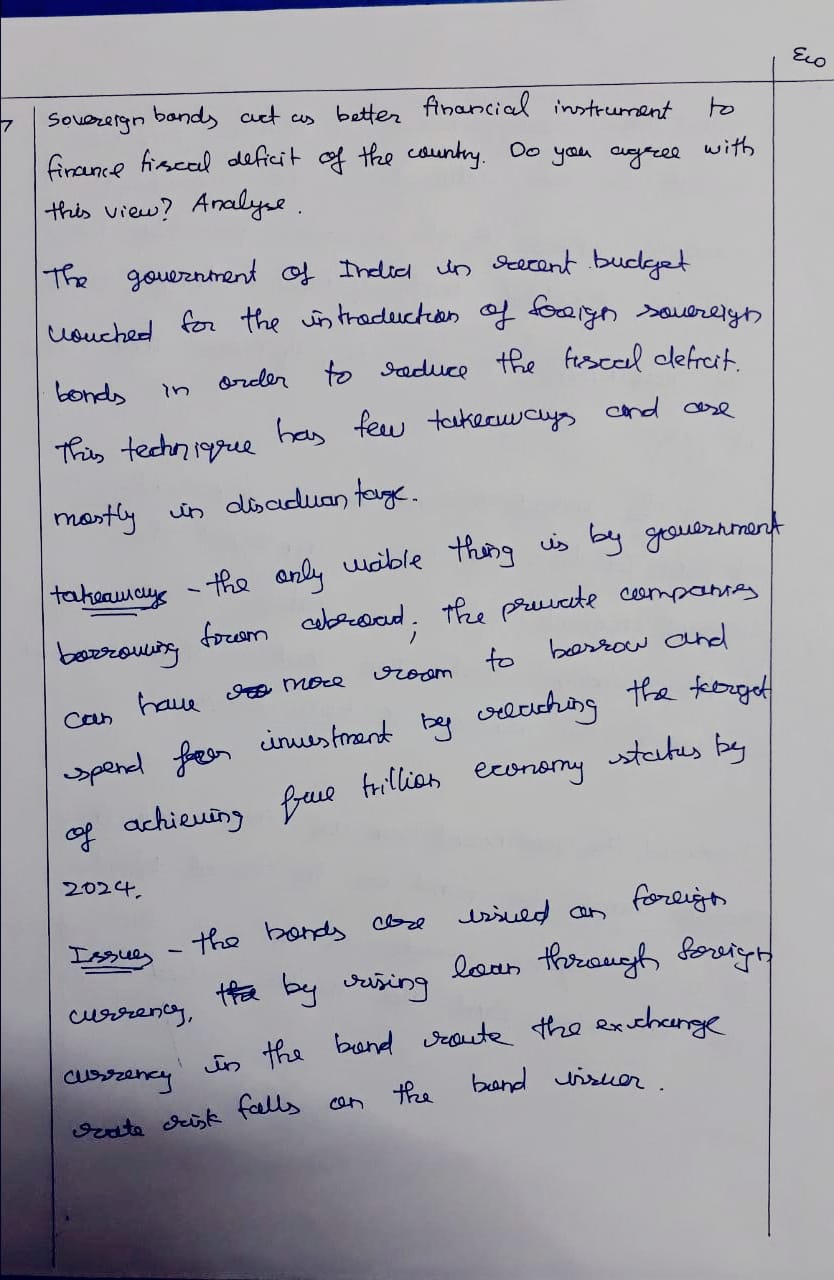 Eco
7 Sovereign bonds act as better financial instrument to
finance fiscal deficit of the country. Do you agree with
this view? Analyse.
The government of India in recent budget
vouched for the introduction of foreign sovereign
bonds in order to reduce the fiscal deficit.
This technique has few takeaways and are
mostly in disadvantage.
takeaways - the only viable thing is by government
borrowing from abroad; the private companies
can have more room to borrow and
spend for investment by reaching the target
of achieving five trillion economy status by
2024.
Issues - the bonds are issued on foreign
currency, by rising loan through foreign
currency in the bond route the exchange
rate risk falls on the bond issuer.